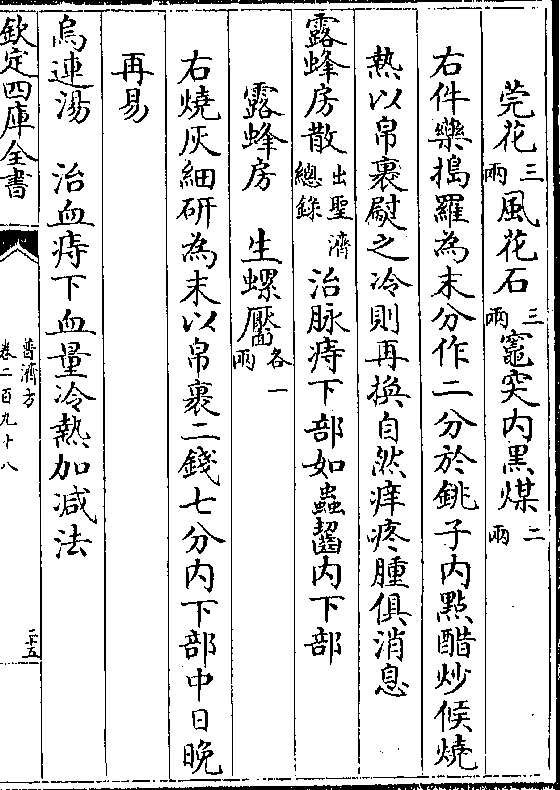 莞花三兩風花石三兩竈突内黒煤二兩
右件藥搗羅為末分作二分於銚子内點醋炒候燒
熱以帛裹熨之冷則再換自然痒疼腫俱消息
露蜂房散出聖濟總錄治脉痔下部如蟲齧内下部
露蜂房 生螺靨各一兩
右燒灰細研為末以帛裹二錢七分内下部中日晚
再易
烏連湯 治血痔下血量冷熱加減法
欽定四庫全書
普濟方
卷二百九十八
二十五